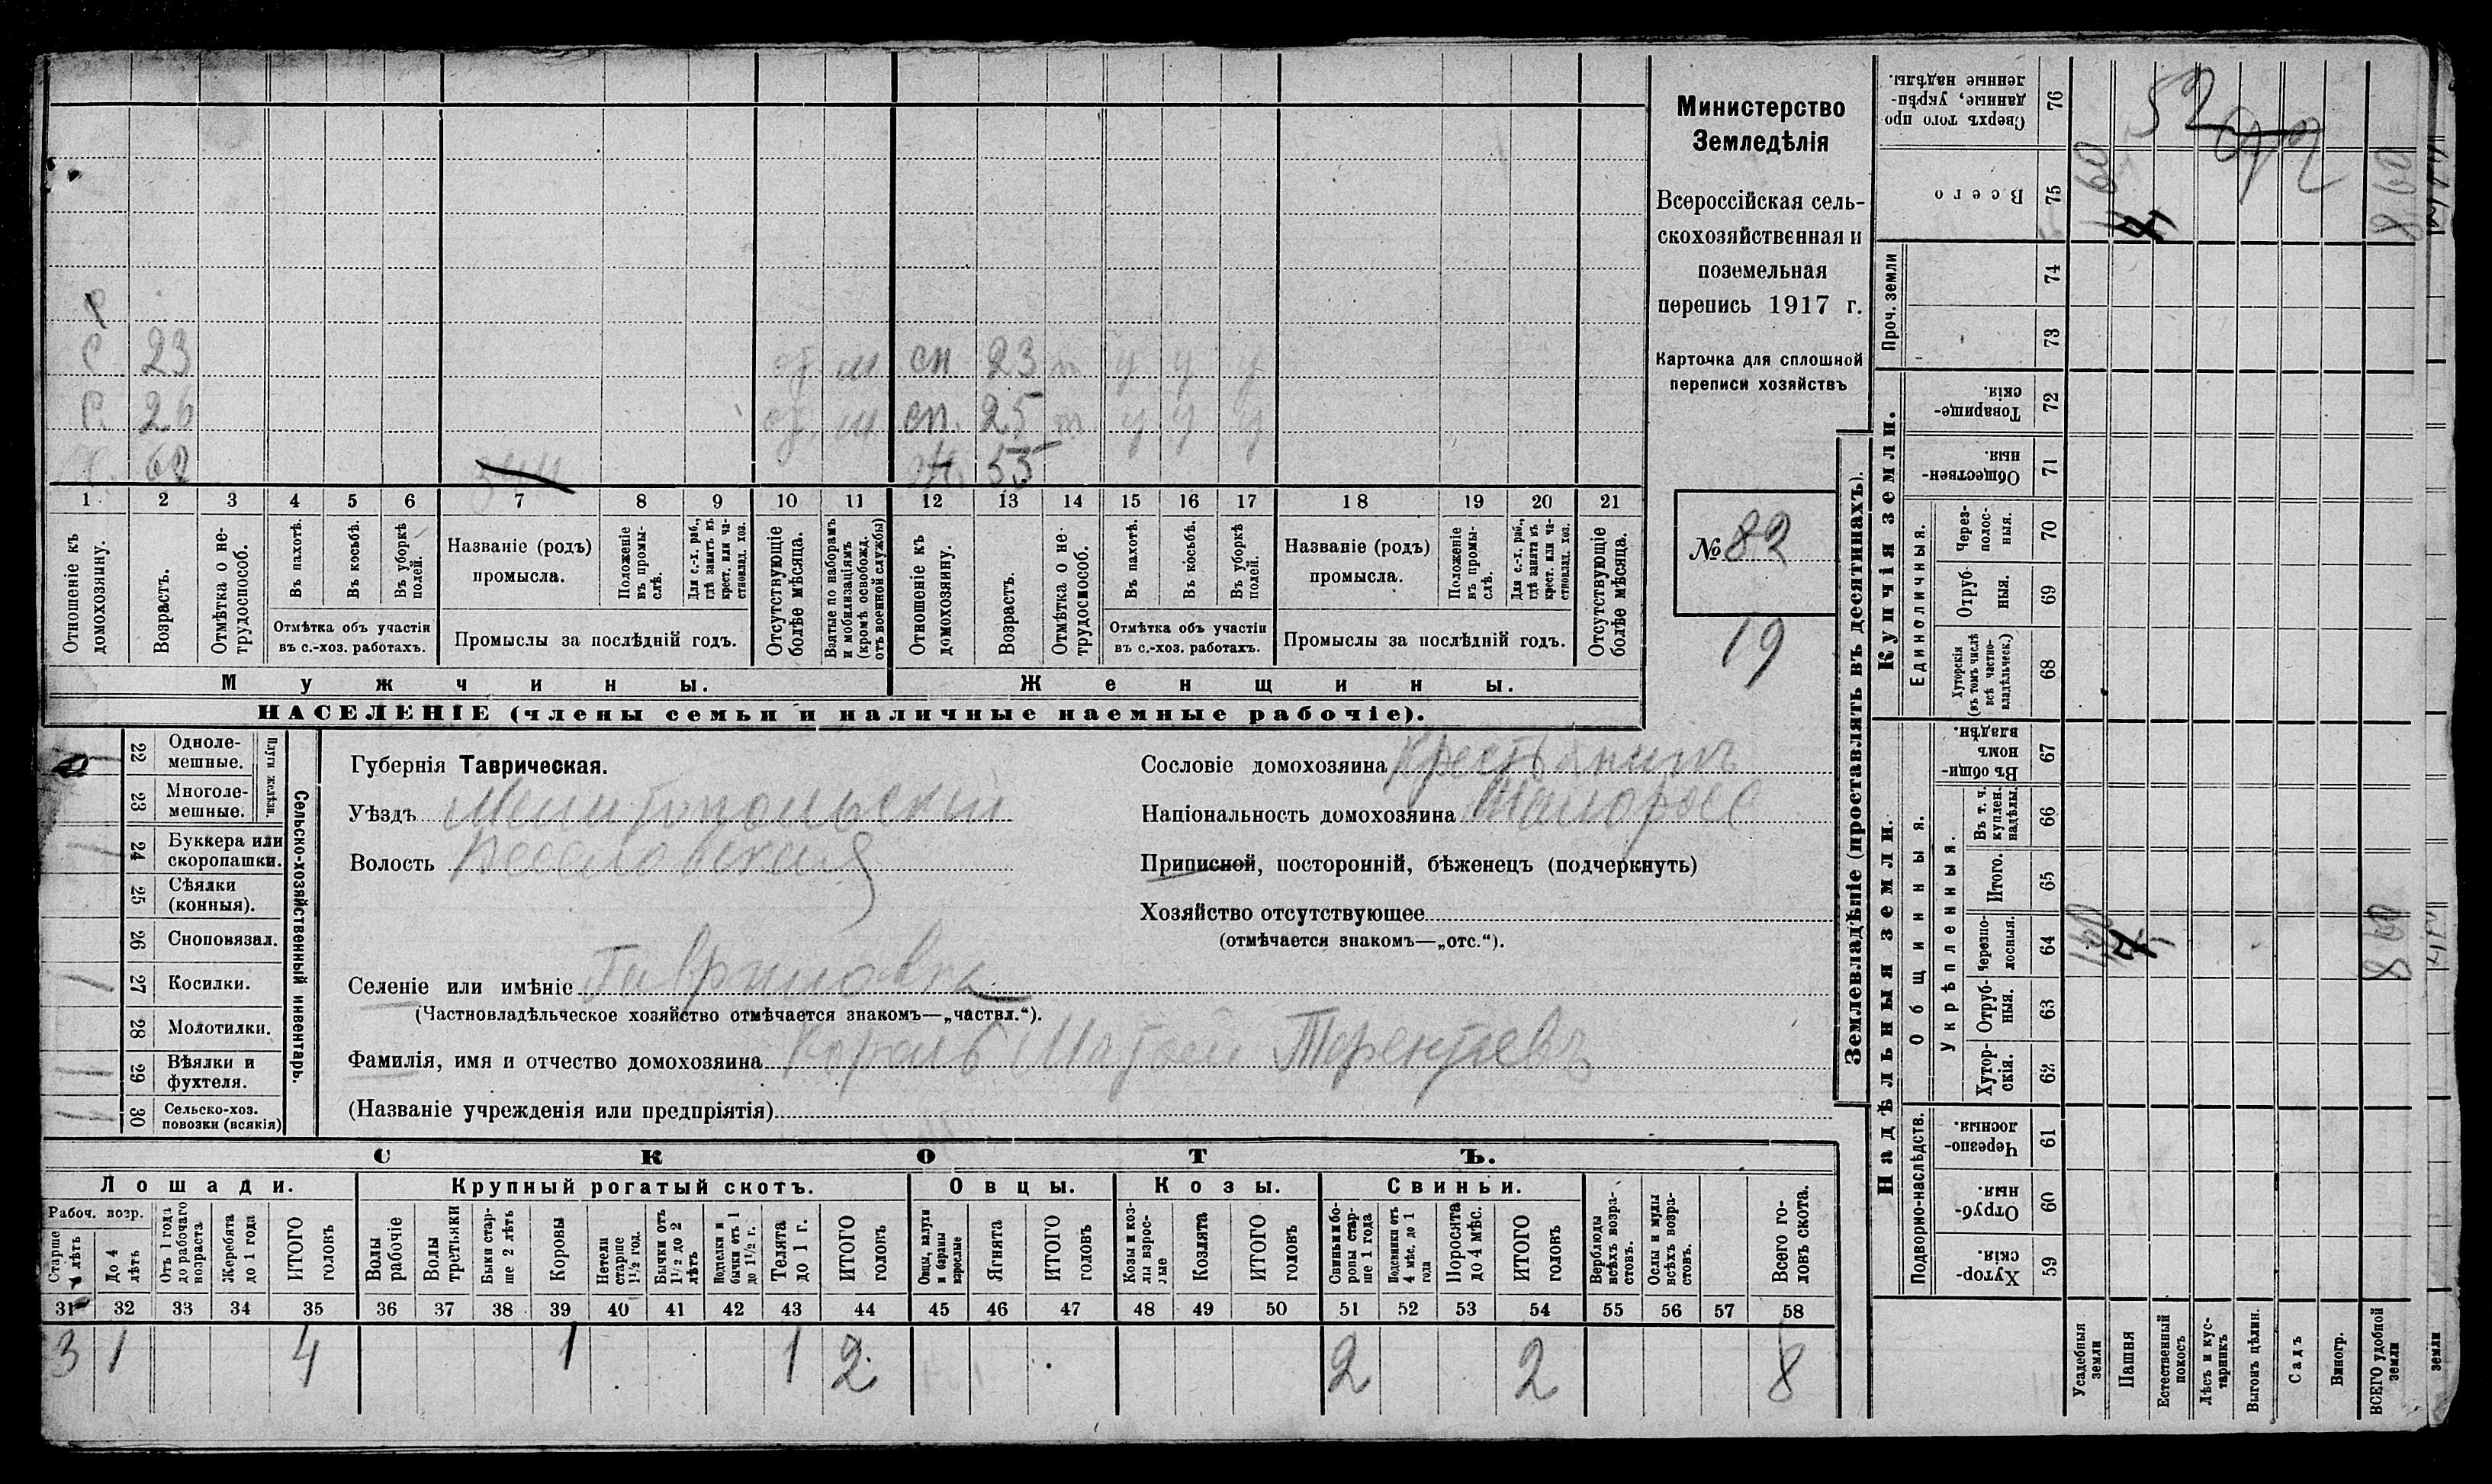 Министерство
Земледѣлія
Всероссійская сель-
скохозяйственная и
поземельная
перепись 1917 г.
Карточка для сплошной
переписи хозяйствъ
№ 82
19
С 23 сн 23
С. 26 сн. 25
Х. 62 Ж. 55
1 2 3 4 5 6 7 8 9 10 11 12 13 14 15 16 17 18 19 20 21
Отношеніе къ домохозяину.
Возрастъ.
Отмѣтка о не-трудоспособ.
Въ пахотѣ.
Въ косьбѣ.
Въ уборкѣ полей.
Отмѣтка объ участіи
въ с.-хоз. работахъ.
Названіе (родъ)
промысла.
Положеніе въ промы-слѣ.
Для с.-х. раб., гдѣ занятъ въ крест. или ча-стновлад. хоз.
Промыслы за послѣдній годъ.
Отсутствующіе болѣе мѣсяца.
Взятые по наборамъ и мобилизаціямъ (кромѣ освобожд. отъ военной службы)
Отношеніе къ домохозяину.
Возрастъ.
Отмѣтка о не-трудоспособ.
Въ пахотѣ.
Въ косьбѣ.
Въ уборкѣ полей.
Отмѣтка объ участіи
въ с.-хоз. работахъ.
Названіе (родъ)
промысла.
Положеніе въ промы-слѣ.
Для с.-х. раб., гдѣ занята въ крест. или ча-стновлад. хоз.
Промыслы за послѣдній годъ.
Отсутствующіе болѣе мѣсяца.
Мужчины.
Женщины.
НАСЕЛЕНІЕ (члены семьи и наличные наемные рабочіе).
Сельско-хозяйственный инвентарь.
Плуги желѣзн.
22 Одноле-мешные.
23 Многоле-мешные.
24 Буккера или скоропашки.
25 Сѣялки (конныя).
26 Сноповязал.
27 Косилки.
28 Молотилки.
29 Вѣялки и фухтеля.
30 Сельско-хоз. повозки (всякія)
Губернія Таврическая.
Уѣздъ Мелитопольскій
Волость Веселовская
Селеніе или имѣніе Гавриловка
(Частновладѣльческое хозяйство отмѣчается знакомъ—„частвл.“).
Фамилія, имя и отчество домохозяина Король Матвей Терентьевъ
(Названіе учрежденія или предпріятія)
Сословіе домохозяина Крестьянинъ
Національность домохозяина Малоросс
Приписной, посторонній, бѣженецъ (подчеркнуть)
Хозяйство отсутствующее
(отмѣчается знакомъ—„отс.“).
СКОТЪ.
Лошади.
Крупный рогатый скотъ.
Овцы.
Козы.
Свиньи.
Рабоч. возр.
Старше 4 лѣтъ
До 4 лѣтъ
Отъ 1 года до рабочаго возраста
Жеребята до 1 года
ИТОГО головъ
Волы рабочіе
Волы третьяки
Быки стар-ше 2 лѣтъ
Коровы
Нетели старше 1½ год.
Бычки отъ 1½ до 2 лѣтъ
Подтелки и бычки отъ 1 до 1½ г.
Телята до 1 г.
ИТОГО головъ
Овцы, валухи и бараны взрослые
Ягнята
ИТОГО головъ
Козы и коз-лы взрос-лые
Козлята
ИТОГО головъ
Свиньи и бо-ровы стар-ше 1 года
Подсвинки отъ 4 мѣс. до 1 года
Поросята до 4 мѣс.
ИТОГО головъ
Верблюды всѣхъ возра-стовъ.
Ослы и мулы всѣхъ возра-стовъ.
Всего го-ловъ скота.
31 32 33 34 35 36 37 38 39 40 41 42 43 44 45 46 47 48 49 50 51 52 53 54 55 56 57 58
3 1 4 1 1 2 2 2 8
Землевладѣніе (проставлять въ десятинахъ).
Купчія земли.
Надѣльныя земли.
Сверхъ того про-данные, укрѣп-ленные надѣлы. 76
Всего 75
Проч. земли 74
73
Товарище-скія. 72
Обществен-ныя. 71
Единоличныя.
Через-полос-ныя. 70
Отруб-ныя. 69
Хуторскія (въ томъ числѣ всѣ частно-владѣльческ.) 68
Общинныя.
Въ общин-номъ владѣн. 67
Укрѣпленныя.
Въ т. ч. куплен. надѣлы. 66
Итого. 65
Черезпо-лосныя. 64
Отруб-ныя. 63
Хутор-скія. 62
Подворно-наслѣдств.
Черезпо-лосныя. 61
Отруб-ныя. 60
Хутор-скія. 59
Усадебныя земли
Пашня
Естественный покосъ
Лѣсъ и кус-тарникъ
Выгонъ цѣлин.
Садъ
Виногр.
ВСЕГО удобной земли
земли
52